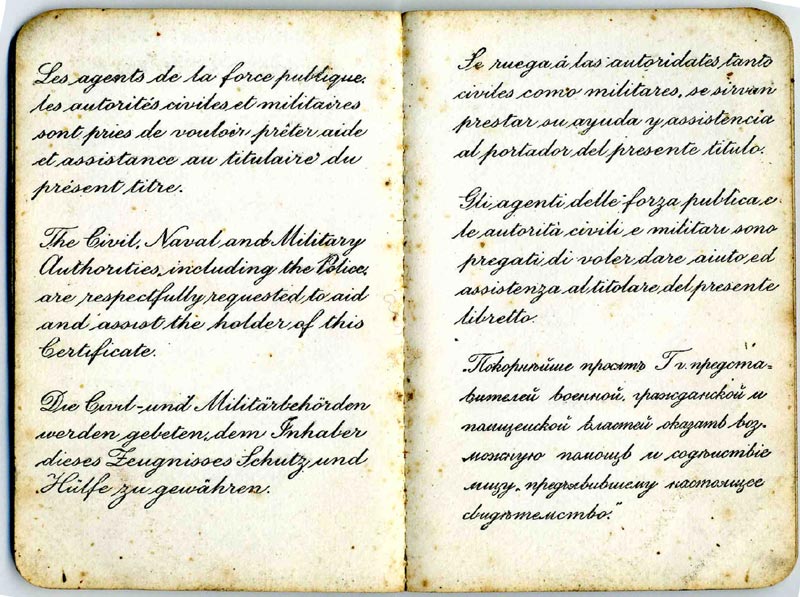 Les agents de la force publique,
les autorités civiles et militaires
sont priés de vouloir prêter aide
et assistance au titulaire du
présent titre.
The Civil, Naval and Military
Authorities, including the Police,
are respectfully requested to aid
and assist the holder of this
Certificate.
Die Civil-und Militärbehörden
werden gebeten, dem Inhaber
dieses Zeugnisses Schutz und
Hülfe zu gewähren.
Se ruega á las autoridates, tanto
civiles como militares, se sirvan
prestar su ayuda y assistencia
al portador del presente titulo.
Gli agenti delle forza publica e
le autorità civili e militari sono
pregati di voler dare aiuto ed
assistenza al titolare del presente
libretto.
„Покорнѣйше просятъ Гг. предста-
вителей военной, гражданской и
полицейской властей оказать воз-
можную помощь и содѣйствіе
лицу, предъявившему настоящее
свидѣтельство."